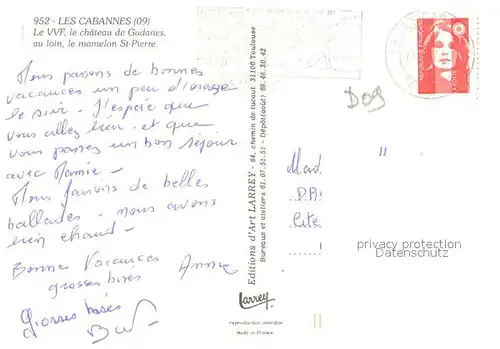 952 - LES CABANNES (09)
Le VVF, le château de Gudanes,
au loin, le mamelon St-Pierre.
Nous passons de bonnes
vacances un peu d'orage
le soir. J'espère que
vous allez bien et que
vous passez un bon séjour
avec Mamie -
Nous faisons de belles
ballades - nous avons
bien chaud -
Bonnes Vacances
grosses bises Annie
Grosses bises
Editions d'Art LARREY - 64, chemin de tucaut - 31100 Toulouse
Bureaux et ateliers 61.07.51.51 - Dépôt(août) 68.48.30.42
Larrey
reproduction interdite
Made in France
REPUBLIQUE FRANÇAISE
LA POSTE
D09
Mad
privacy protection
Datenschutz